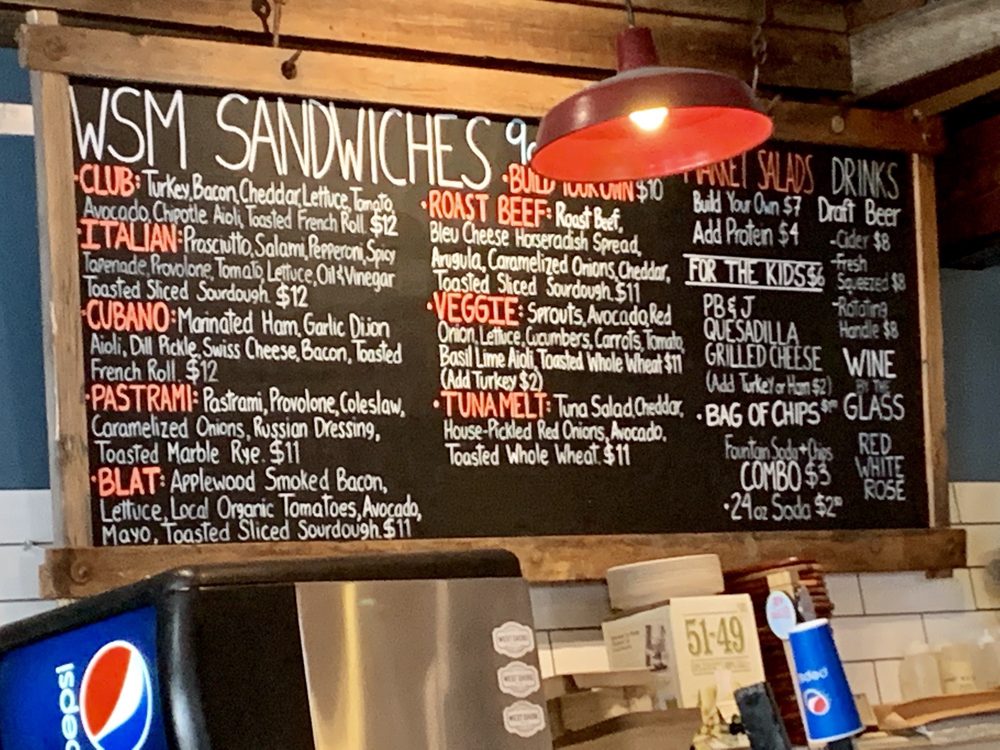 WSM SANDWICHES
• CLUB: Turkey, Bacon, Cheddar, Lettuce, Tomato,
Avocado, Chipotle Aioli, Toasted French Roll. $12
• ITALIAN: Prosciutto, Salami, Pepperoni, Spicy
Tapenade, Provolone, Tomato, Lettuce, Oil & Vinegar
Toasted Sliced Sourdough. $12
• CUBANO: Marinated Ham, Garlic Dijon
Aioli, Dill Pickle, Swiss Cheese, Bacon, Toasted
French Roll. $12
• PASTRAMI: Pastrami, Provolone, Coleslaw,
Caramelized Onions, Russian Dressing,
Toasted Marble Rye. $11
• BLAT: Applewood Smoked Bacon,
Lettuce, Local Organic Tomatoes, Avocado,
Mayo, Toasted Sliced Sourdough. $11
• BUILD YOUR OWN $10
• ROAST BEEF: Roast Beef,
Bleu Cheese Horseradish Spread,
Arugula, Caramelized Onions, Cheddar,
Toasted Sliced Sourdough. $11
• VEGGIE: Sprouts, Avocado, Red
Onion, Lettuce, Cucumbers, Carrots, Tomato,
Basil Lime Aioli, Toasted Whole Wheat $11
(Add Turkey $2)
• TUNA MELT: Tuna Salad, Cheddar,
House-Pickled Red Onions, Avocado,
Toasted Whole Wheat. $11
MARKET SALADS
Build Your Own $7
Add Protein $4
FOR THE KIDS $6
PB & J
QUESADILLA
GRILLED CHEESE
(Add Turkey or Ham $2)
• BAG OF CHIPS
Fountain Soda + Chips
COMBO $3
• 24oz Soda $2
DRINKS
Draft Beer
-Cider $8
-Fresh
Squeezed $8
-Rotating
Handle $8
WINE
BY THE
GLASS
RED
WHITE
ROSE
pepsi
WEST SHORE
WEST SHORE
WEST SHORE
51·49